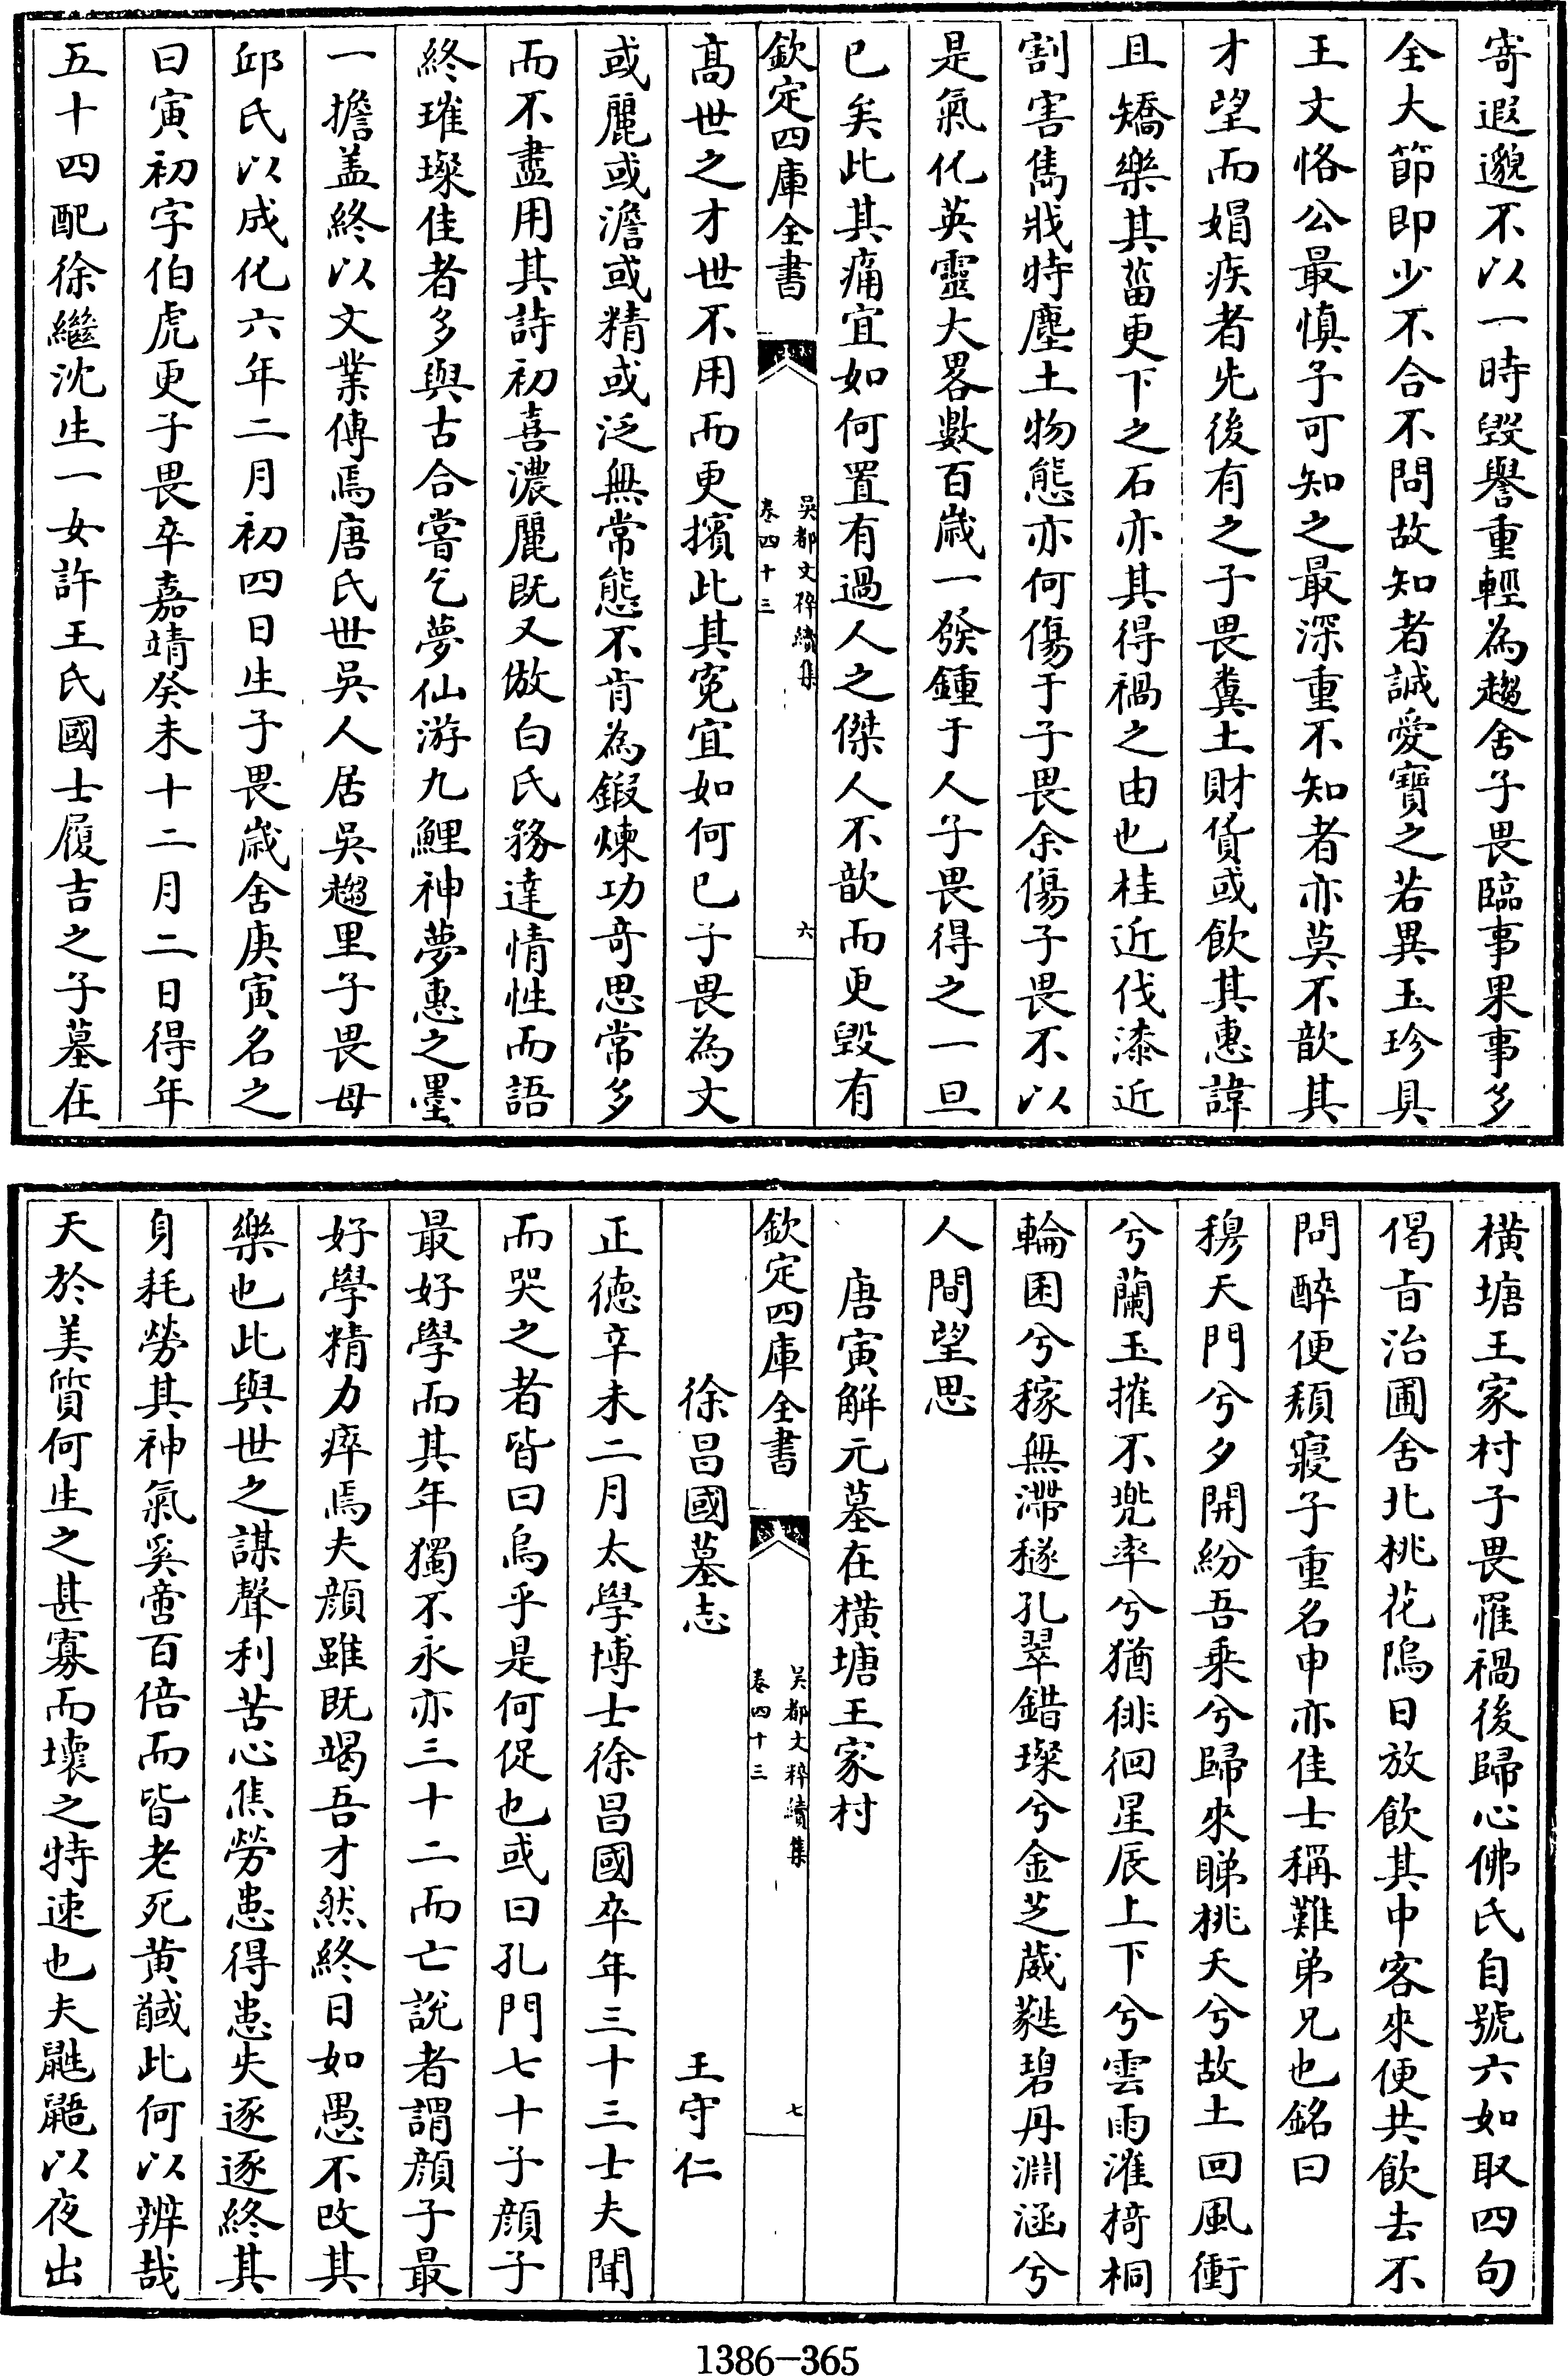 寄遐邈不以一時毀譽重輕為趨舍子畏臨事果事多
全大節即少不合不問故知者誠愛寶之若異玉珍貝
王文恪公最慎予可知之最深重不知者亦莫不歆其
才望而媢疾者先後有之子畏糞土財貨或飲其惠諱
且矯樂其菑更下之石亦其得禍之由也桂近伐漆近
割害雋戕特塵土物態亦何傷于子畏余傷子畏不以
是氣化英靈大畧數百歲一發鍾于人子畏得之一旦
已矣此其痛宜如何置有過人之傑人不歆而更毀有
欽定四庫全書
吳都文粹續集
卷四十三
六
高世之才世不用而更擯此其冤宜如何已子畏為文
或麗或澹或精或泛無常態不肯為鍛煉功奇思常多
而不盡用其詩初喜濃麗既又倣白氏務達情性而語
終璀璨佳者多與古合嘗乞夢仙游九鯉神夢惠之墨
一擔盖終以文業傅焉唐氏世吳人居吳趨里子畏母
邱氏以成化六年二月初四日生子畏歲舍庚寅名之
曰寅初字伯虎更子畏卒嘉靖癸未十二月二日得年
五十四配徐繼沈生一女許王氏國士履吉之子墓在
橫塘王家村子畏罹禍後歸心佛氏自號六如取四句
偈旨治圃舍北桃花塢日放飲其中客來便共飲去不
問醉便頹寢子重名申亦佳士稱難弟兄也銘曰
穆天門兮夕開紛吾乘兮歸來睇桃夭兮故土回風衝
兮蘭玉摧不兠率兮猶徘徊星辰上下兮雲雨漼椅桐
輪囷兮稼無滯穟孔翠錯璨兮金芝葳蕤碧丹淵涵兮
人間望思
唐寅解元墓在橫塘王家村
欽定四庫全書
吳都文粹續集
卷四十三
七
徐昌國墓志 王守仁
正德辛未二月太學博士徐昌國卒年三十三士夫聞
而哭之者皆曰烏乎是何促也或曰孔門七十子顔子
最好學而其年獨不永亦三十二而亡說者謂顔子最
好學精力瘁焉夫顔雖既竭吾才然終日如愚不改其
樂也此與世之謀聲利苦心焦勞患得患失逐逐終其
身耗勞其神氣奚啻百倍而皆老死黄馘此何以辨哉
天於美質何生之甚寡而壞之特速也夫鼪鼯以夜出
1386-365